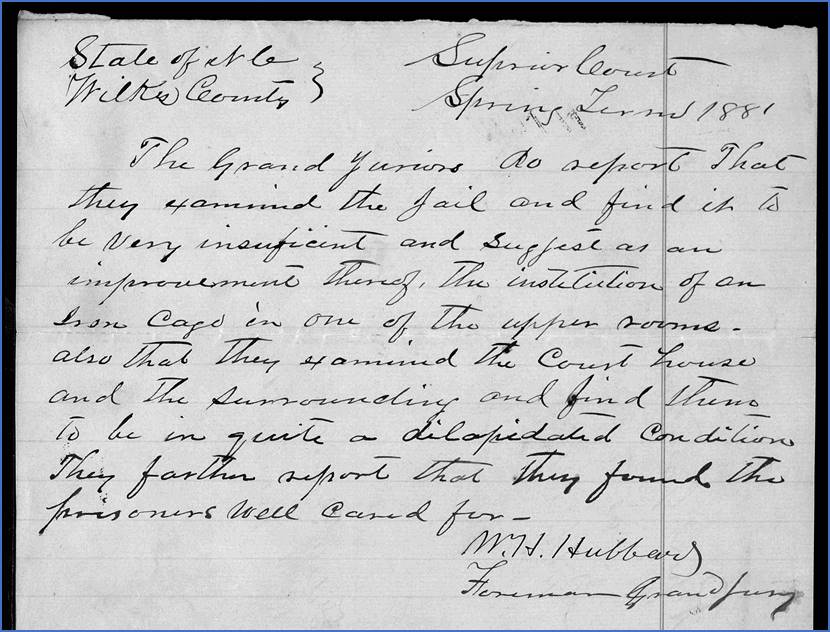 State of N C } Superior Court
Wilkes County } Spring Term 1881
The Grand Juriors do report That
they examined the Jail and find it to
be very insuficient and suggest as an
improvement thereof, the institution of an
Iron Cage in one of the upper rooms -
also that they examined the Court house
and the surrounding and find them
to be in quite a dilapidated condition
They farther report that they found the
prisoners well cared for -
W. H. Hubbard
Foreman Grand jury